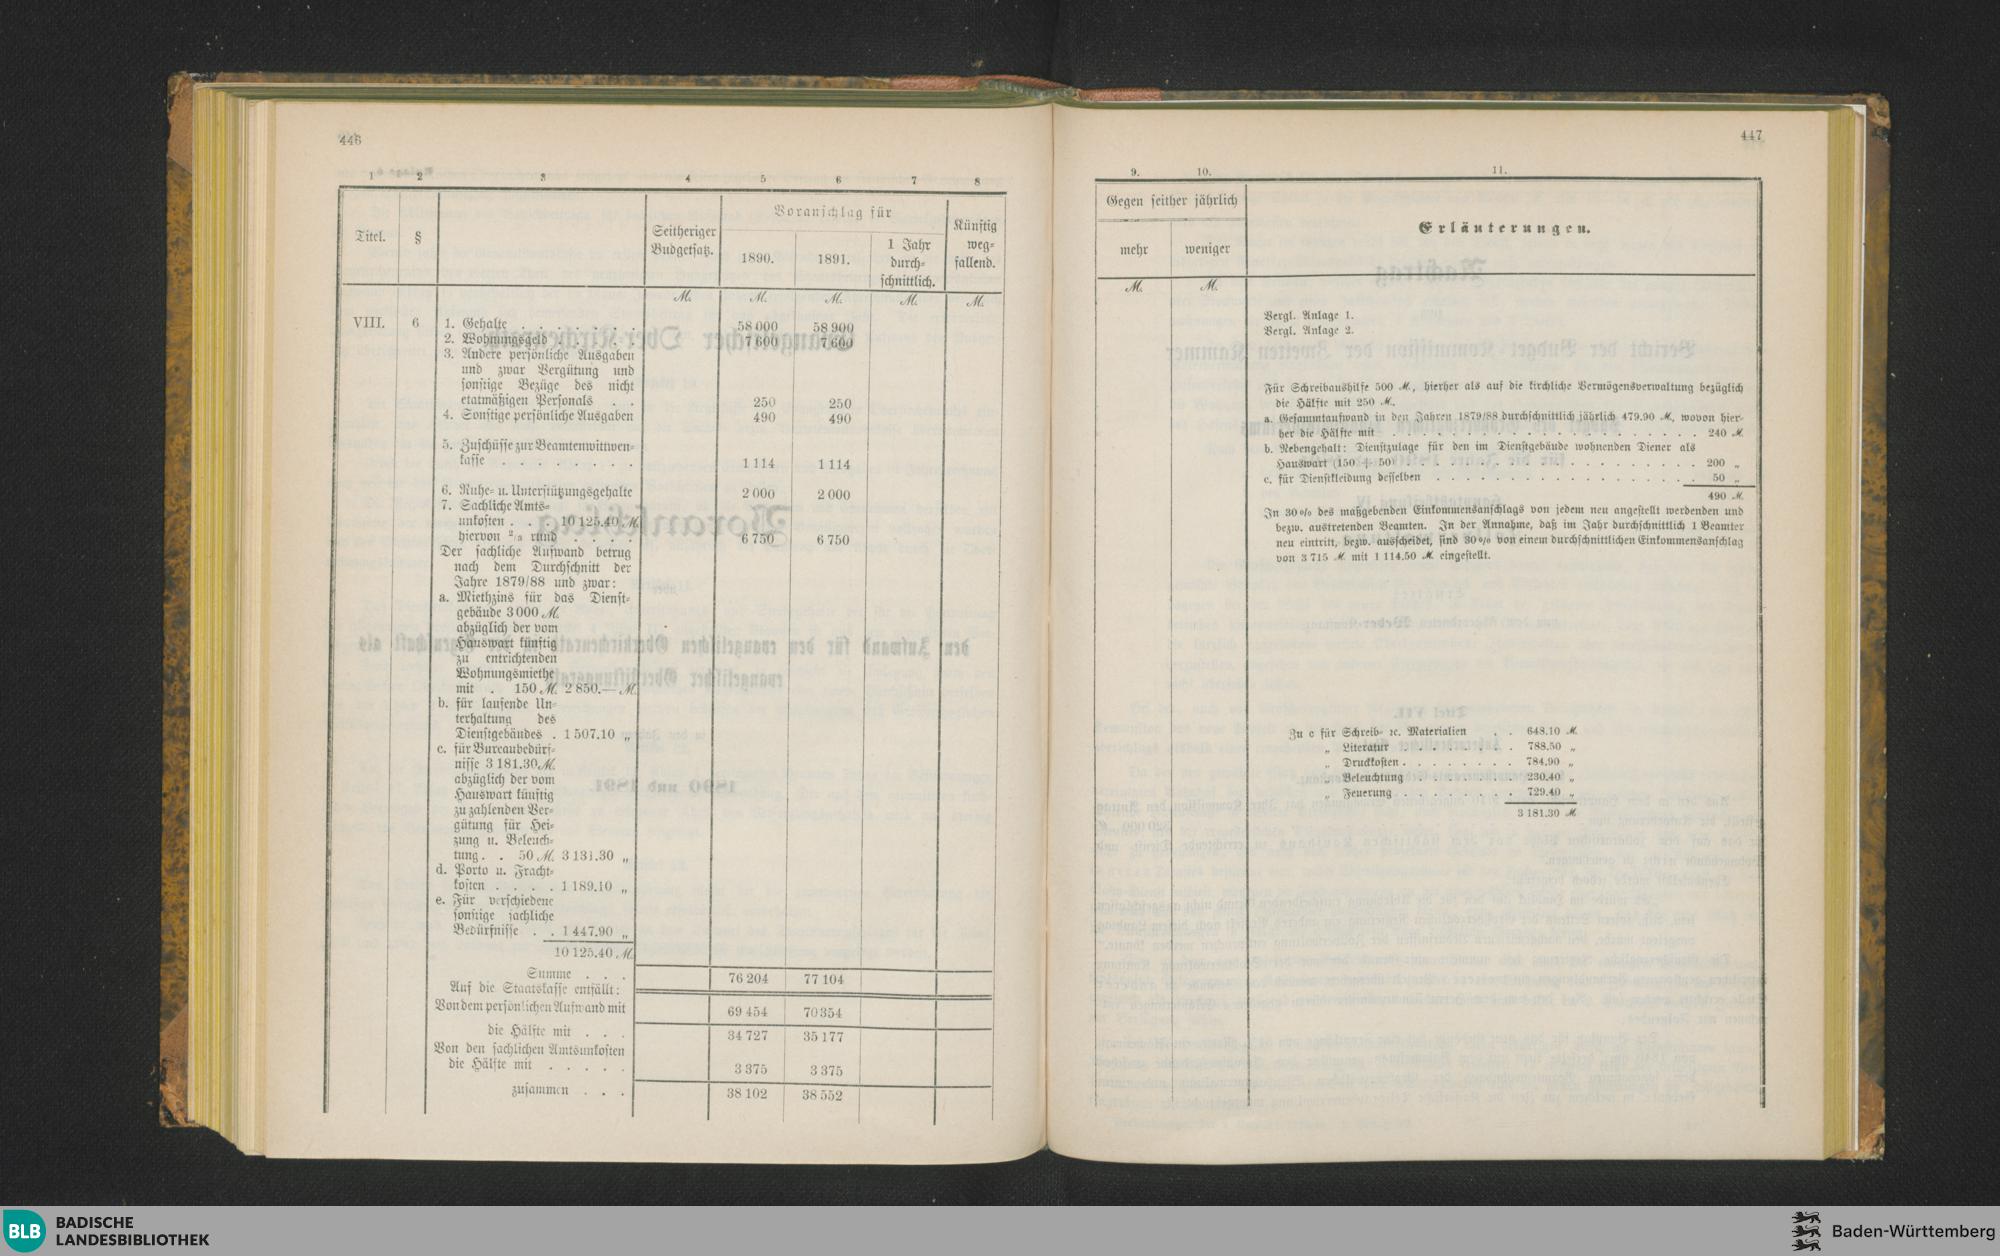 446
1 2 3 4 5 6 7 8
Titel. § Seitheriger Budgetsatz. Voranschlag für Künftig weg-
fallend.
1890. 1891. 1 Jahr
durch-
schnittlich.
M. M. M. M. M.
VIII. 6 1. Gehalte . . . . . . . 58 000 58 900
2. Wohnungsgeld . . . . . 7 600 7 600
3. Andere persönliche Ausgaben
und zwar Vergütung und
sonstige Bezüge des nicht
etatmäßigen Personals . . 250 250
4. Sonstige persönliche Ausgaben 490 490
5. Zuschüsse zur Beamtenwittwen-
kasse . . . . . . . . 1 114 1 114
6. Ruhe- u. Unterstützungsgehalte 2 000 2 000
7. Sachliche Amts-
unkosten . . . 10 125.40 M.
hiervon 2/3 rund . . . . 6 750 6 750
Der sachliche Aufwand betrug
nach dem Durchschnitt der
Jahre 1879/88 und zwar:
a. Miethzins für das Dienst-
gebäude 3 000 M.
abzüglich der vom
Hauswart künftig
zu entrichtenden
Wohnungsmiethe
mit . 150 M. 2 850.— M.
b. für laufende Un-
terhaltung des
Dienstgebäudes . 1 507.10 „
c. für Bureaubedürf-
nisse 3 181.30 M.
abzüglich der vom
Hauswart künftig
zu zahlenden Ver-
gütung für Hei-
zung u. Beleuch-
tung . . 50 M. 3 131.30 „
d. Porto u. Fracht-
kosten . . . . 1 189.10 „
e. Für verschiedene
sonstige sachliche
Bedürfnisse . . 1 447.90 „
10 125.40 M.
Summe . . . 76 204 77 104
Auf die Staatskasse entfällt:
Von dem persönlichen Aufwand mit 69 454 70 354
die Hälfte mit . . . 34 727 35 177
Von den sachlichen Amtsunkosten
die Hälfte mit . . . . . 3 375 3 375
zusammen . . . 38 102 38 552
447
9. 10. 11.
Gegen seither jährlich
mehr weniger
Erläuterungen.
M. M.
Vergl. Anlage 1.
Vergl. Anlage 2.
Für Schreibaushilfe 500 M., hierher als auf die kirchliche Vermögensverwaltung bezüglich
die Hälfte mit 250 M.
a. Gesammtaufwand in den Jahren 1879/88 durchschnittlich jährlich 479.90 M., wovon hier-
her die Hälfte mit . . . . . . . . . . . . . . . . . . 240 M.
b. Nebengehalt: Dienstzulage für den im Dienstgebäude wohnenden Diener als
Hauswart (150 + 50) . . . . . . . . . . . . . . . . . 200 „
c. für Dienstkleidung desselben . . . . . . . . . . . . . . . 50 „
490 M.
In 30% des maßgebenden Einkommensanschlags von jedem neu angestellt werdenden und
bezw. austretenden Beamten. In der Annahme, daß im Jahr durchschnittlich 1 Beamter
neu eintritt, bezw. ausscheidet, sind 30% von einem durchschnittlichen Einkommensanschlag
von 3 715 M. mit 1 114.50 M. eingestellt.
Zu c für Schreib- ꝛc. Materialien . . 648.10 M.
„ Literatur . . . . . . . . 788.50 „
„ Druckkosten . . . . . . . . 784.90 „
„ Beleuchtung . . . . . . . . 230.40 „
„ Feuerung . . . . . . . . . 729.40 „
3 181.30 M.
BLB BADISCHE
LANDESBIBLIOTHEK
Baden-Württemberg